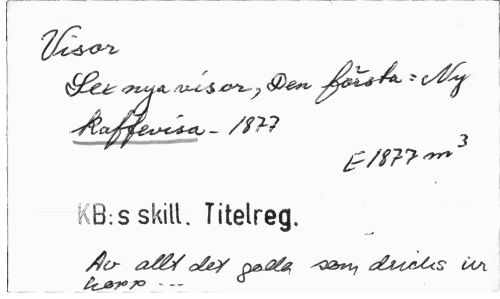 Visor
Sex nya visor, Den första: Ny
Kaffevisa - 1877
E 1877 m³
KB:s skill. Titelreg.
Av allt det goda som dricks ur
kopp ...